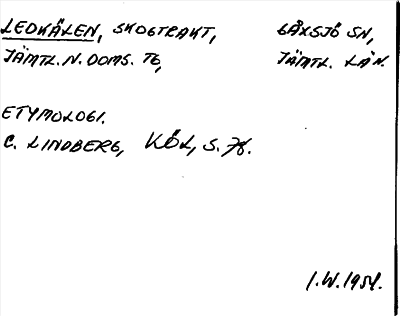 LEDKÄLEN, SKOGTRAKT, LAXSJÖ SN,
JÄMTL. N. DOMS. TG, JÄMTL. LÄN.
ETYMOLOGI.
C. LINDBERG, KÖL, S.
I.W. 1954.